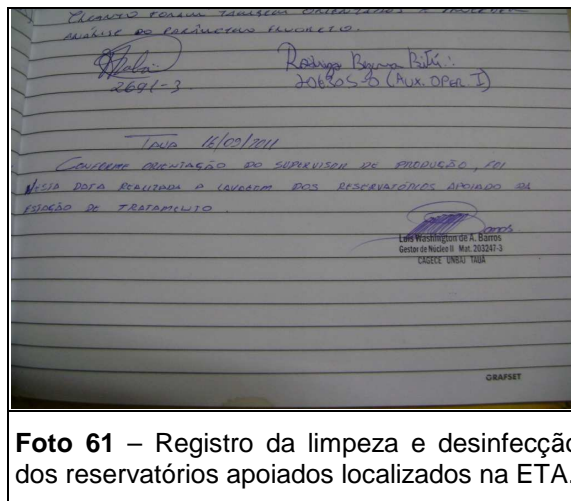 QUANTO FORAM TAMBÉM ORIENTADOS A
ANÁLISE DO PARÂMETRO FLUORETO.
2691-3
Rodrigo
206305-0 (AUX. OPER. I)
TAUÁ 16/09/2011
CONFORME ORIENTAÇÃO DO SUPERVISOR DE PRODUÇÃO, FOI
NESTA DATA REALIZADA A LAVAGEM DOS RESERVATÓRIOS APOIADO DA
ESTAÇÃO DE TRATAMENTO.
Luis Washington de A. Barros
Gestor de Núcleo II Mat. 203247-3
CAGECE UNBAJ TAUÁ
GRAFSET
Foto 61 – Registro da limpeza e desinfecção
dos reservatórios apoiados localizados na ETA.